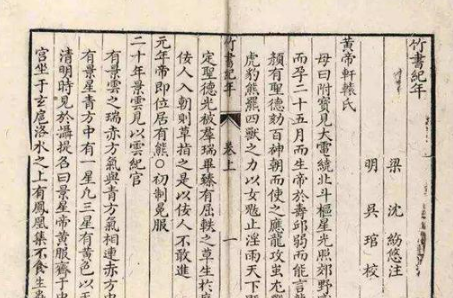 竹書紀年
梁 沈 約 悠 注
明 吳 琯 校
黃帝軒轅氏
母曰附寶見大電繞北斗樞星光照郊野
而孕二十五月而生帝於壽邱弱而能言龍
顏有聖德劾百神朝而使之應龍攻蚩尤
虎豹熊羆四獸之力以女魃止淫雨天下
竹書紀年
卷上
一
定聖德光被羣瑞畢臻有屈軼之草生於庭
佞人入朝則草指之是以佞人不敢進
元年帝即位居有熊○初制冕服
二十年景雲見以雲紀官
有景雲之瑞赤方氣與青方氣相連赤方中
有景星青方中有一星凡三星有黃色以天
清明時見於攝提名曰景星帝黃服齋于中
宮坐于玄扈洛水之上有鳳凰集不食生蟲